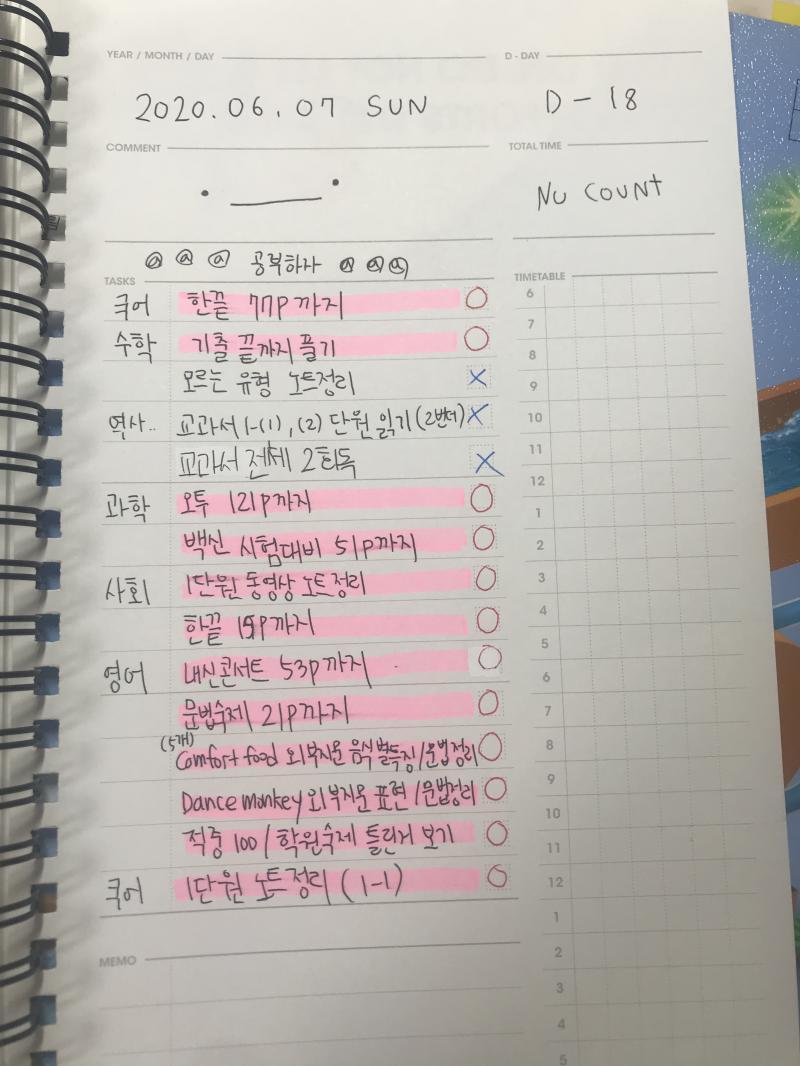 YEAR / MONTH / DAY
D - DAY
2020.06.07 SUN
D - 18
COMMENT
TOTAL TIME
No COUNT
공부하자
TASKS
TIMETABLE
국어 한끝 77p까지
수학 기출 끝까지 풀기
모르는 유형 노트정리
역사.. 교과서 1-(1), (2) 단원 읽기 (2번더)
교과서 전체 2회독
과학 오투 121p까지
백신 시험대비 51p까지
사회 1단원 동영상 노트정리
한끝 15p까지
영어 내신콘서트 53p까지
문법숙제 21p까지
(5개)
Comfort food 외부지문 음식별특징/문법정리
Dance monkey 외부지문 표현/문법정리
적중 100/학원숙제 틀린거 보기
국어 1단원 노트정리 (1-1)
MEMO
6
7
8
9
10
11
12
1
2
3
4
5
6
7
8
9
10
11
12
1
2
3
4
5